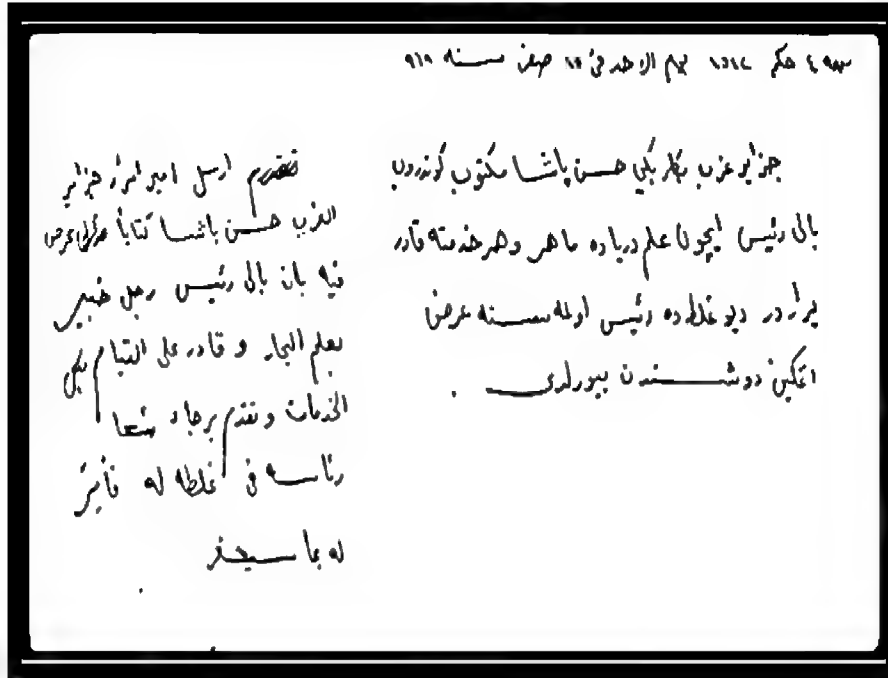 حكم ١٥١٤ يوم الاحد في ١٥ صفر سنه ٩٦٩
جزاير غرب بكلربكي حسن پاشا مكتوب كوندروب
بالى رئيس ايچون علم درياده ماهر و هر خدمته قادر
يراردر ديو غلطه ده رئيس اولمه سنه عرض
اتمكين دوشندن بيورلدى .
ارسل امير امراء جزاير
الغرب حسن باشا كتاباً عرض
فيه بان بالى رئيس رجل خبير
بعلم البحار و قادر على القيام بكل
الخدمات و تقدم برجاء
رئاسه في غلطه له
له بما